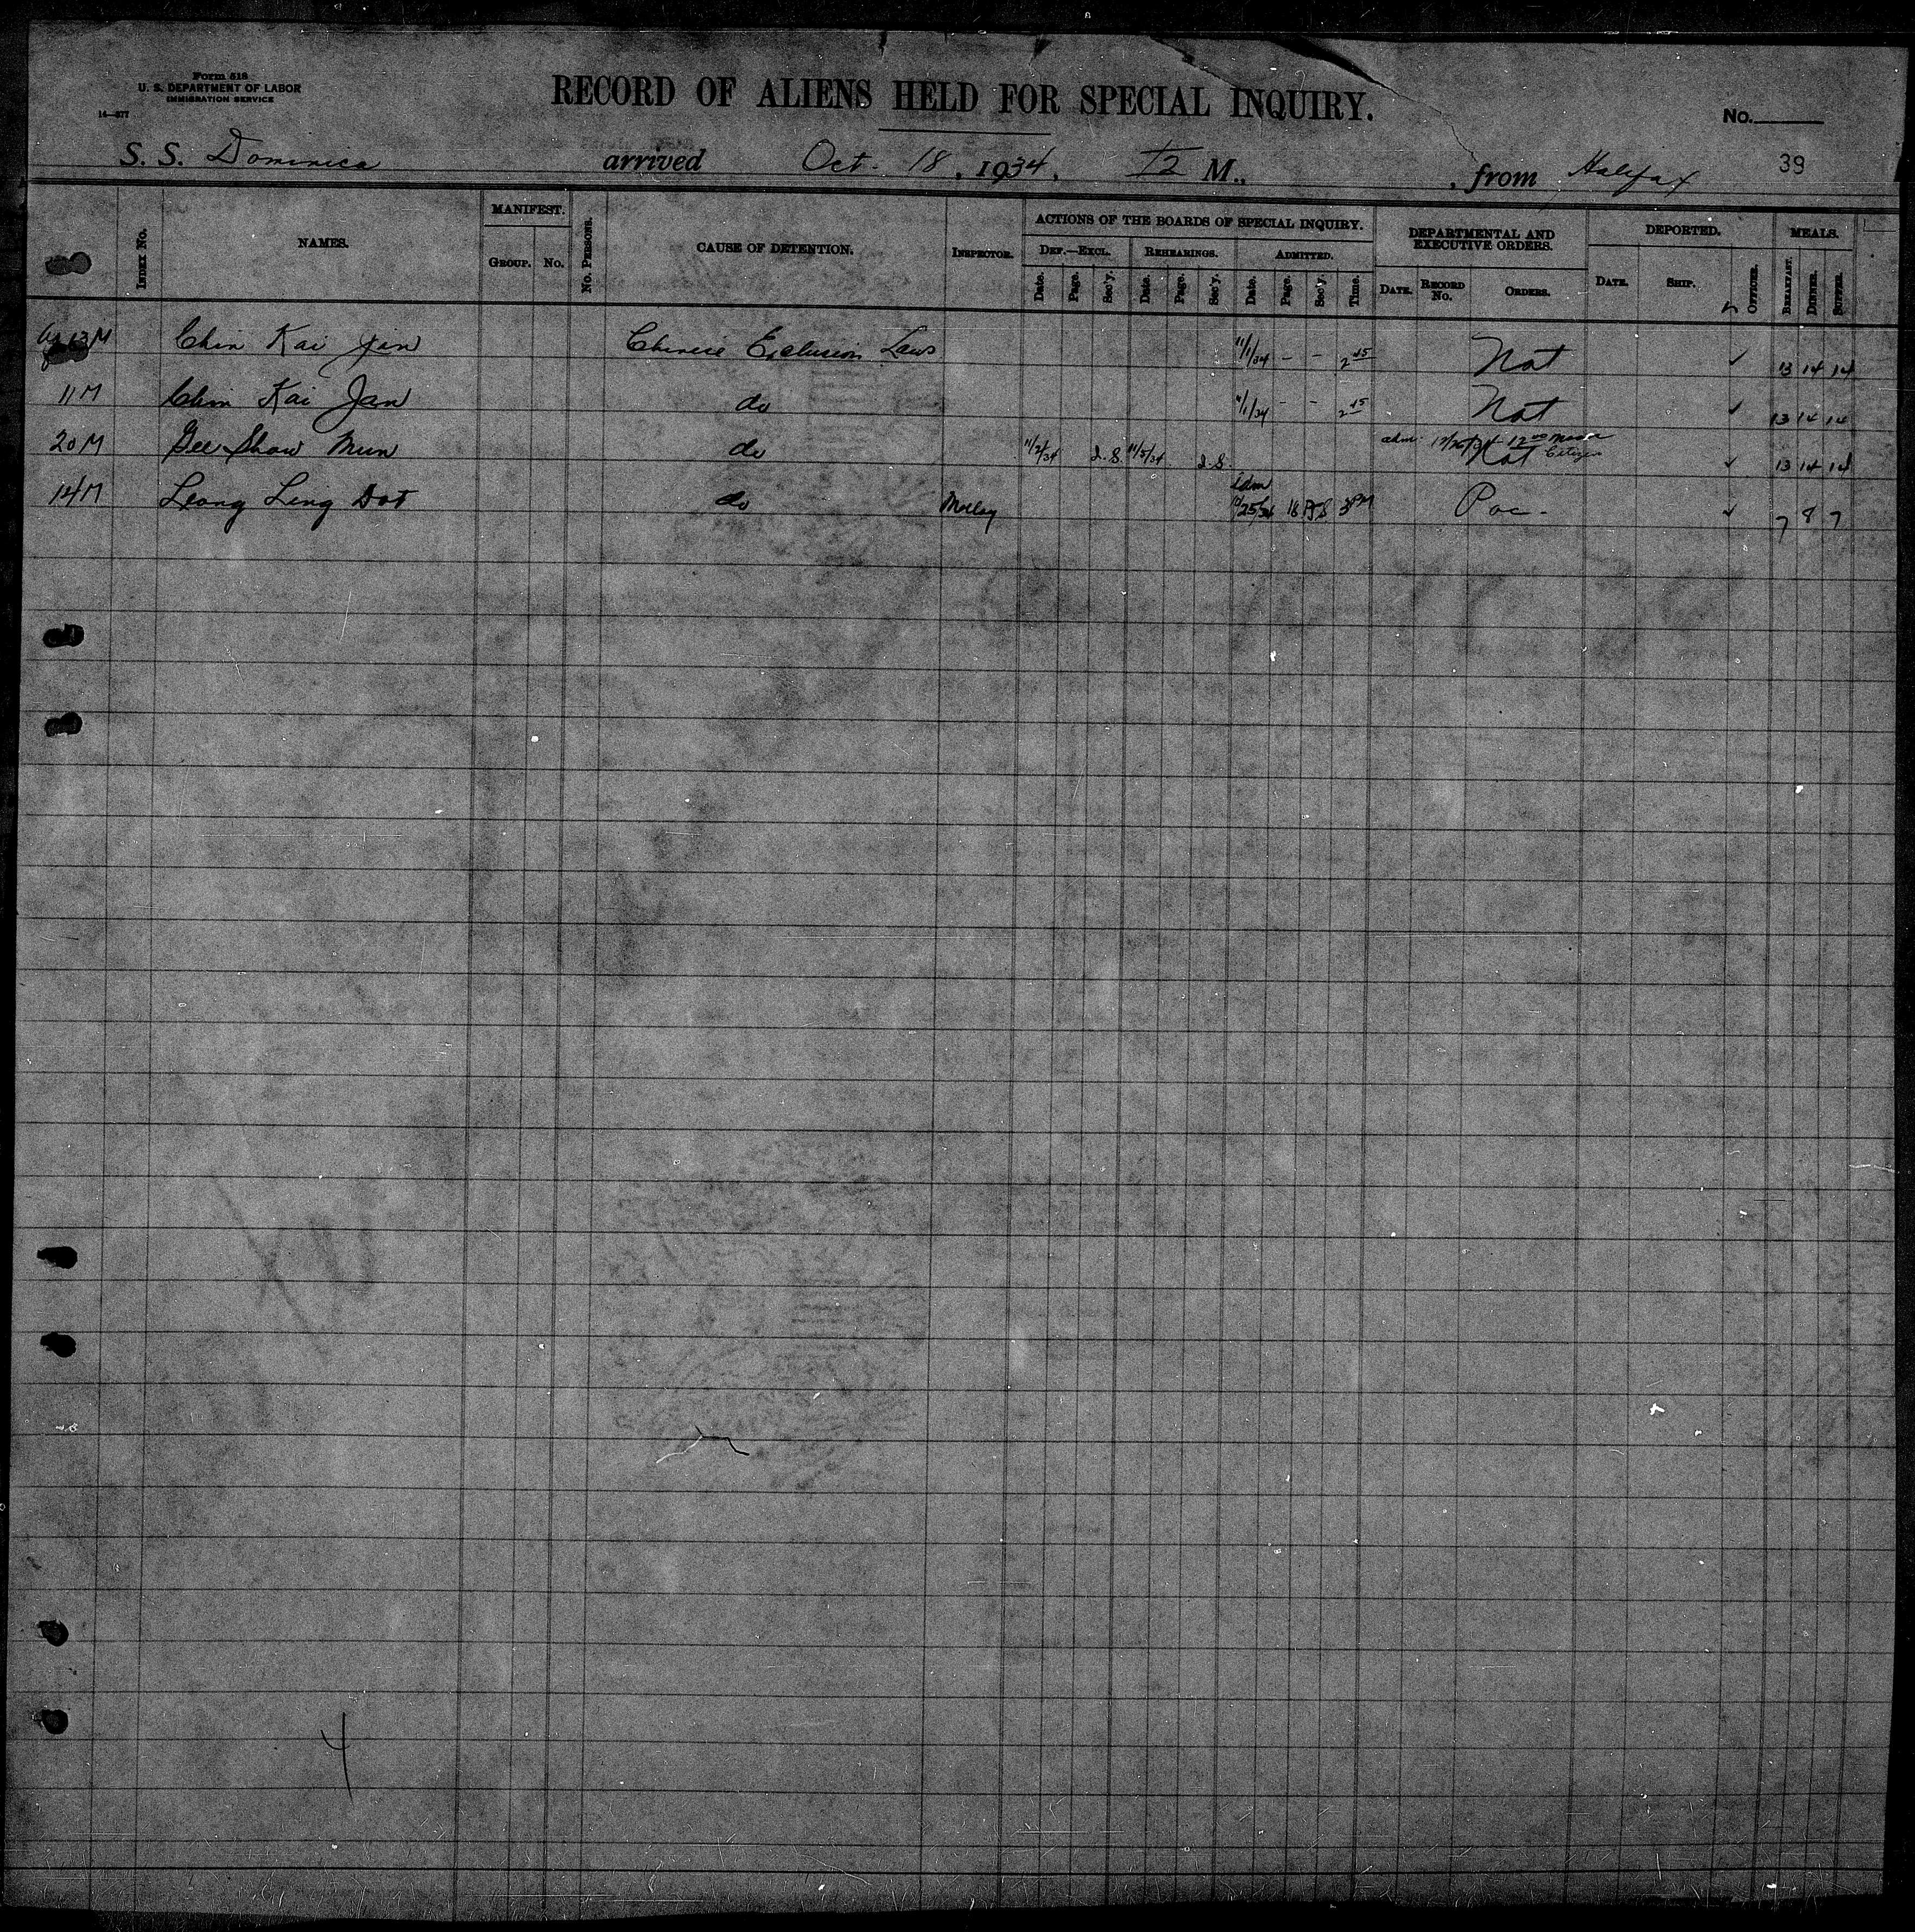 Form 518
U. S. DEPARTMENT OF LABOR
IMMIGRATION SERVICE
14—377
RECORD OF ALIENS HELD FOR SPECIAL INQUIRY.
No.
S. S. Dominica arrived Oct. 18, 1934, 12 M., from Halifax 39
INDEX No.
NAMES.
MANIFEST.
GROUP. No.
No. PERSONS.
CAUSE OF DETENTION.
INSPECTOR.
ACTIONS OF THE BOARDS OF SPECIAL INQUIRY.
DEF.—EXCL. REHEARINGS. ADMITTED.
Date. Page. Sec'y. Date. Page. Sec'y. Date. Page. Sec'y. Time.
DEPARTMENTAL AND EXECUTIVE ORDERS.
DATE. RECORD No. ORDERS.
DEPORTED.
DATE. SHIP. OFFICER.
MEALS.
BREAKFAST. DINNER. SUPPER.
13 M Chin Kai Chinese Exclusion Laws 11/1/34 - - 2 45 Nat ✓ 13 14 14
11 M Chin Kai Jan do 11/1/34 - - 2 45 Nat ✓ 13 14 14
20 M Gee Show Mun do 11/2/34 11/5/34 adm. 12 00 Noon Nat Citizen ✓ 13 14 14
14 M Leong Ling Dot do adm 10/25/34 16 3 PM ✓ 7 8 7
4